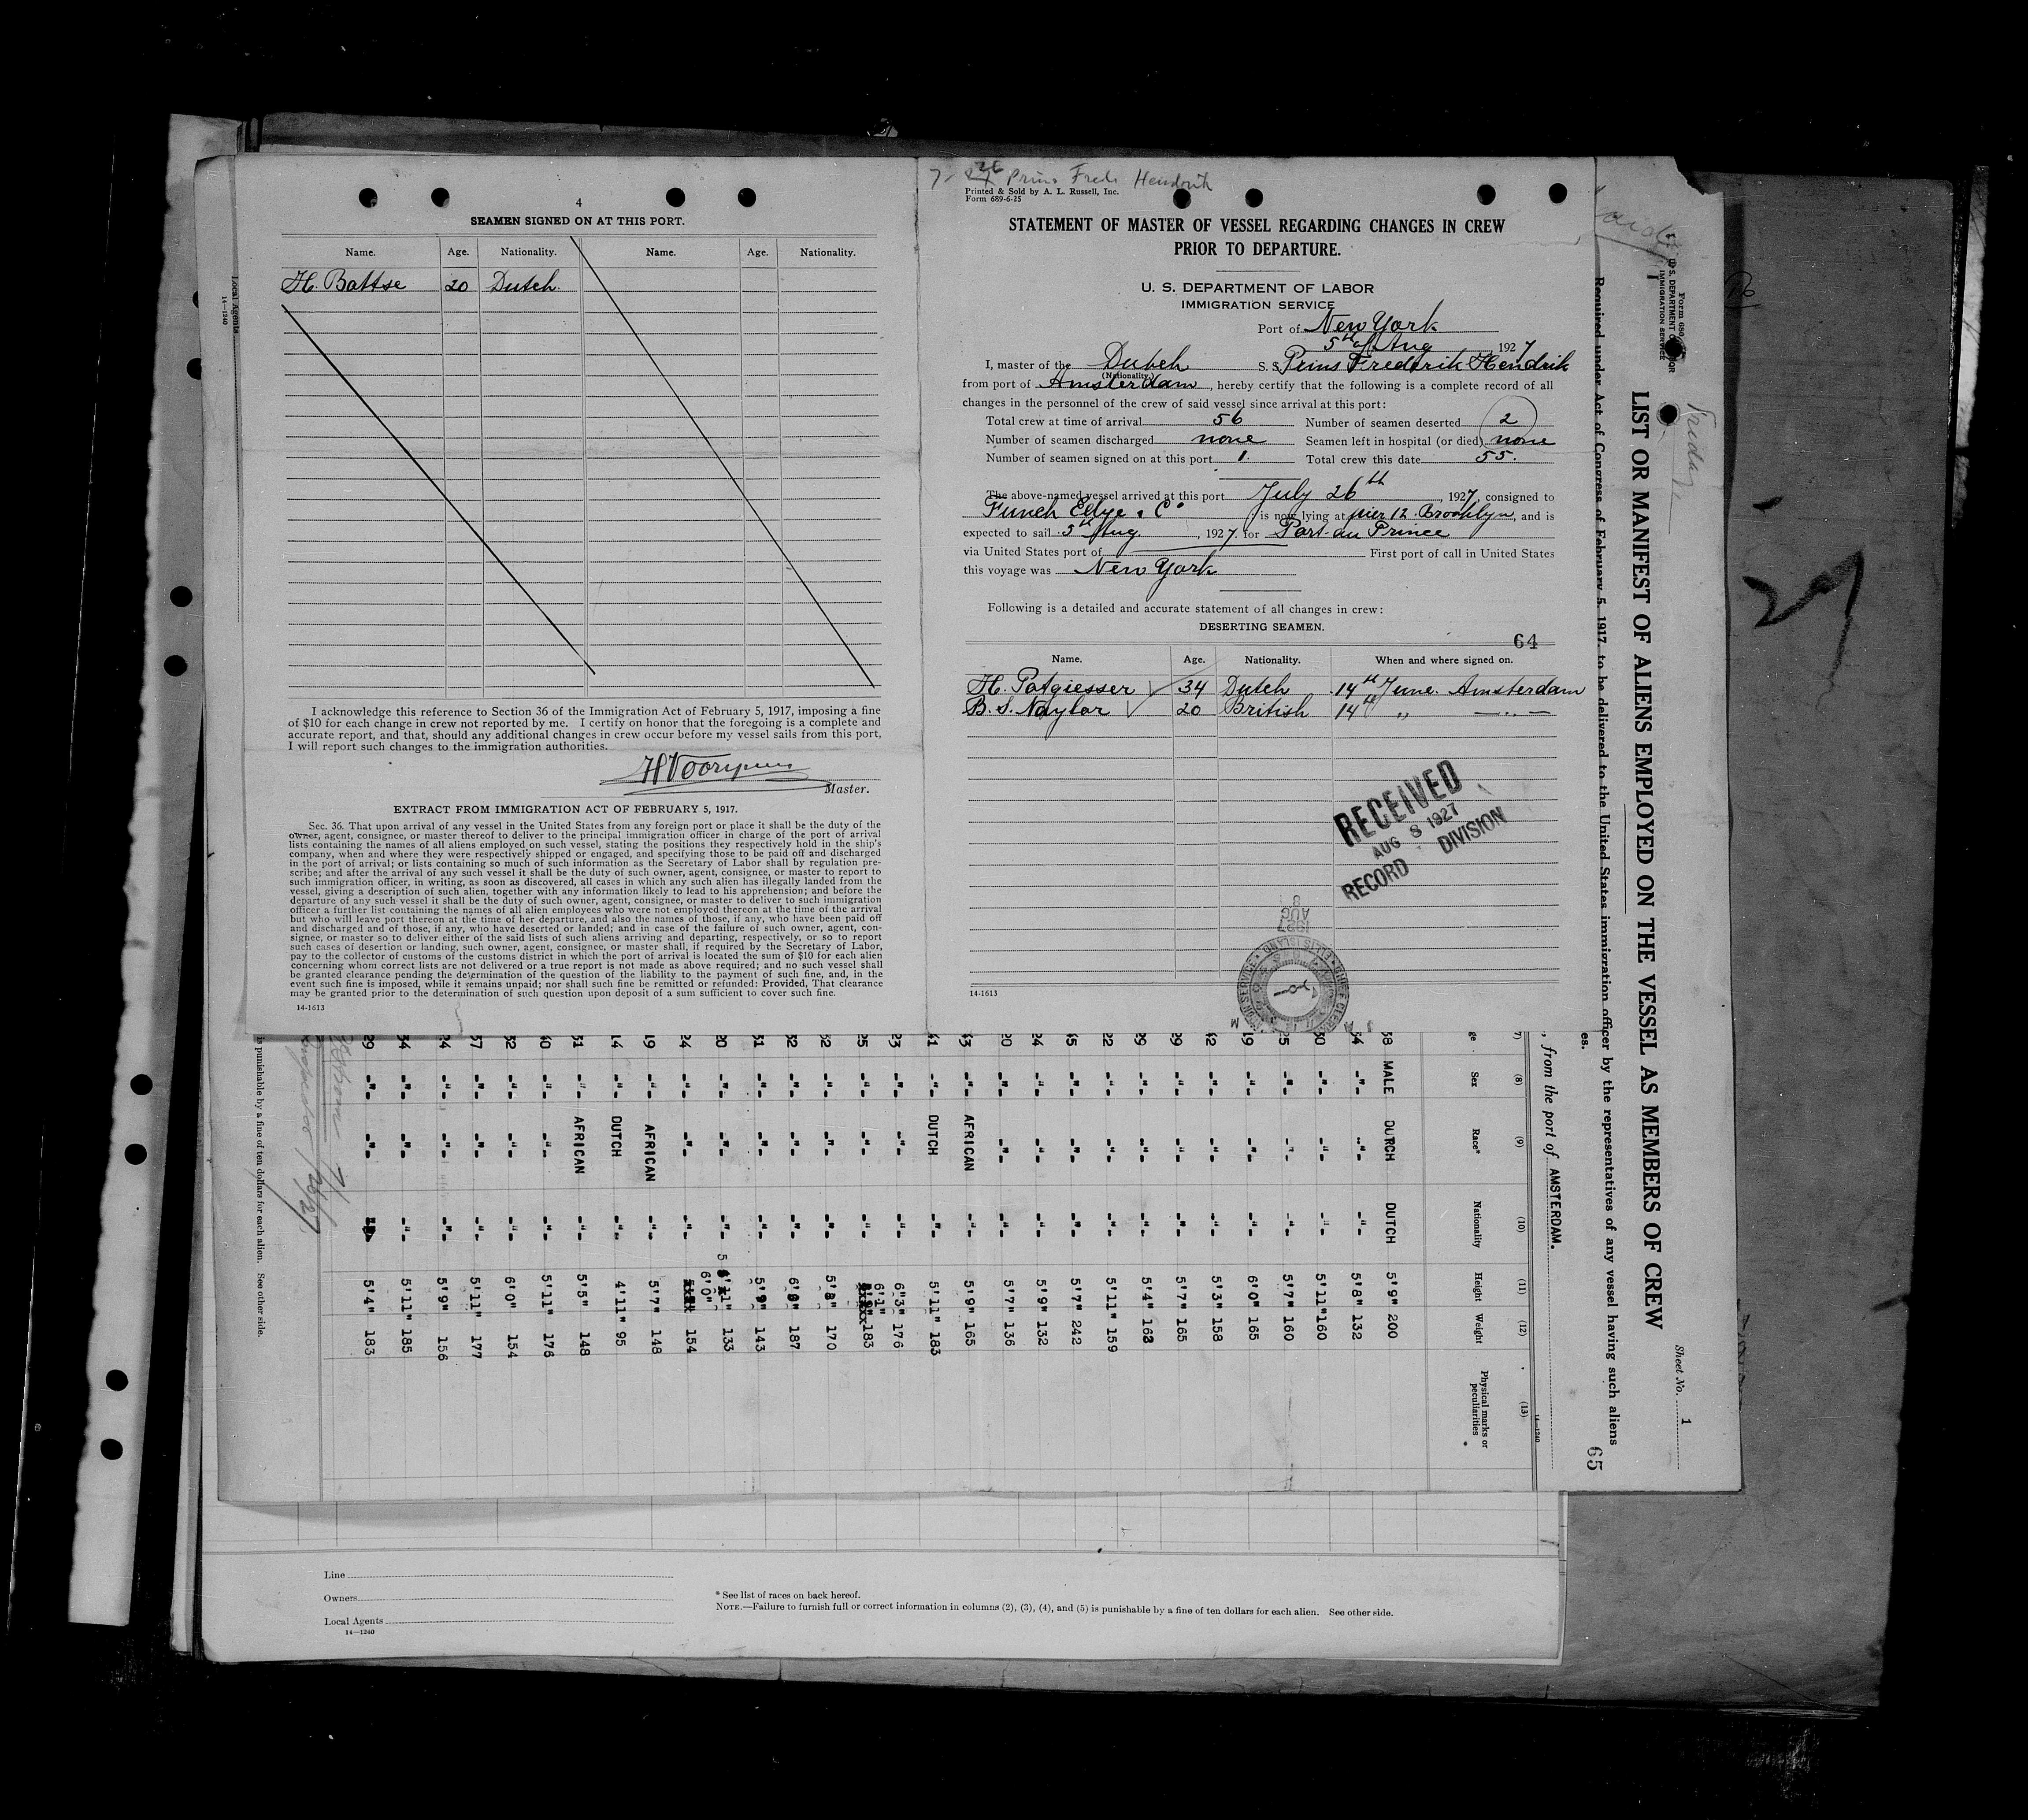 4
SEAMEN SIGNED ON AT THIS PORT.
Name. Age. Nationality. Name. Age. Nationality.
H. Battse 20 Dutch.
I acknowledge this reference to Section 36 of the Immigration Act of February 5, 1917, imposing a fine
of $10 for each change in crew not reported by me. I certify on honor that the foregoing is a complete and
accurate report, and that, should any additional changes in crew occur before my vessel sails from this port,
I will report such changes to the immigration authorities.
Master.
EXTRACT FROM IMMIGRATION ACT OF FEBRUARY 5, 1917.
Sec. 36. That upon arrival of any vessel in the United States from any foreign port or place it shall be the duty of the
owner, agent, consignee, or master thereof to deliver to the principal immigration officer in charge of the port of arrival
lists containing the names of all aliens employed on such vessel, stating the positions they respectively hold in the ship's
company, when and where they were respectively shipped or engaged, and specifying those to be paid off and discharged
in the port of arrival; or lists containing so much of such information as the Secretary of Labor shall by regulation pre-
scribe; and after the arrival of any such vessel it shall be the duty of such owner, agent, consignee, or master to report to
such immigration officer, in writing, as soon as discovered, all cases in which any such alien has illegally landed from the
vessel, giving a description of such alien, together with any information likely to lead to his apprehension; and before the
departure of any such vessel it shall be the duty of such owner, agent, consignee, or master to deliver to such immigration
officer a further list containing the names of all alien employees who were not employed thereon at the time of the arrival
but who will leave port thereon at the time of her departure, and also the names of those, if any, who have been paid off
and discharged and of those, if any, who have deserted or landed; and in case of the failure of such owner, agent, con-
signee, or master so to deliver either of the said lists of such aliens arriving and departing, respectively, or so to report
such cases of desertion or landing, such owner, agent, consignee, or master shall, if required by the Secretary of Labor,
pay to the collector of customs of the customs district in which the port of arrival is located the sum of $10 for each alien
concerning whom correct lists are not delivered or a true report is not made as above required; and no such vessel shall
be granted clearance pending the determination of the question of the liability to the payment of such fine, and, in the
event such fine is imposed, while it remains unpaid; nor shall such fine be remitted or refunded: Provided, That clearance
may be granted prior to the determination of such question upon deposit of a sum sufficient to cover such fine.
14-1613
Prins Fred. Hendrik
Printed & Sold by A. L. Russell, Inc.
Form 689-6-25
STATEMENT OF MASTER OF VESSEL REGARDING CHANGES IN CREW
PRIOR TO DEPARTURE.
U. S. DEPARTMENT OF LABOR
IMMIGRATION SERVICE
Port of New York
5th of Aug 1927
I, master of the Dutch S. S. Prins Frederik Hendrik
(Nationality)
from port of Amsterdam, hereby certify that the following is a complete record of all
changes in the personnel of the crew of said vessel since arrival at this port:
Total crew at time of arrival 56 Number of seamen deserted 2
Number of seamen discharged none Seamen left in hospital (or died) none
Number of seamen signed on at this port 1. Total crew this date 55.
The above-named vessel arrived at this port July 26th, 1927, consigned to
Funch Edye & Co is now lying at pier 12 Brooklyn, and is
expected to sail 5th Aug., 1927. for Port-au Prince
via United States port of First port of call in United States
this voyage was New York
Following is a detailed and accurate statement of all changes in crew:
DESERTING SEAMEN.
64
Name. Age. Nationality. When and where signed on.
H. Potgiesser 34 Dutch 14th June. Amsterdam
B. S. Naylor 20 British 14th " — " —
RECEIVED
AUG 8 1927
RECORD DIVISION
1927
AUG
8
ELLIS ISLAND
CHIEF CLERK
14-1613
Form 680
U. S. DEPARTMENT OF LABOR
IMMIGRATION SERVICE
Sheet No. 1
LIST OR MANIFEST OF ALIENS EMPLOYED ON THE VESSEL AS MEMBERS OF CREW
Required under Act of Congress of February 5, 1917, to be delivered to the United States immigration officer by the representatives of any vessel having such aliens
65
es.
, from the port of AMSTERDAM.
14-1240
(7) (8) (9) (10) (11) (12) (13)
ge Sex Race* Nationality Height Weight Physical marks or peculiarities
38 MALE DUTCH DUTCH 5'9" 200
34 -"- -"- -"- 5'8" 132
30 -"- -"- -"- 5'11" 160
25 -"- -"- -"- 5'7" 160
19 -"- -"- -"- 6'0" 165
42 -"- -"- -"- 5'3" 158
39 -"- -"- -"- 5'7" 165
39 -"- -"- -"- 5'4" 163
22 -"- -"- -"- 5'11" 159
45 -"- -"- -"- 5'7" 242
24 -"- -"- -"- 5'9" 132
20 -"- -"- -"- 5'7" 136
43 -"- AFRICAN -"- 5'9" 165
41 -"- DUTCH -"- 5'11" 183
23 -"- -"- -"- 6'3" 176
25 -"- -"- -"- 6'1" 183
22 -"- -"- -"- 170
32 -"- -"- -"- 187
31 -"- -"- -"- 5'9" 143
20 -"- -"- -"- 133
24 -"- -"- -"- 6'0" 154
19 -"- AFRICAN -"- 5'7" 148
14 -"- DUTCH -"- 4'11" 95
31 -"- AFRICAN -"- 5'5" 148
40 -"- -"- -"- 5'11" 176
32 -"- -"- -"- 6'0" 154
37 -"- -"- -"- 5'11" 177
24 -"- -"- -"- 5'9" 156
34 -"- -"- -"- 5'11" 185
29 -"- -"- 5'4" 183
is punishable by a fine of ten dollars for each alien. See other side.
Local Agents
14-1240
Line
Owners
Local Agents
14-1240
* See list of races on back hereof.
NOTE.—Failure to furnish full or correct information in columns (2), (3), (4), and (5) is punishable by a fine of ten dollars for each alien. See other side.